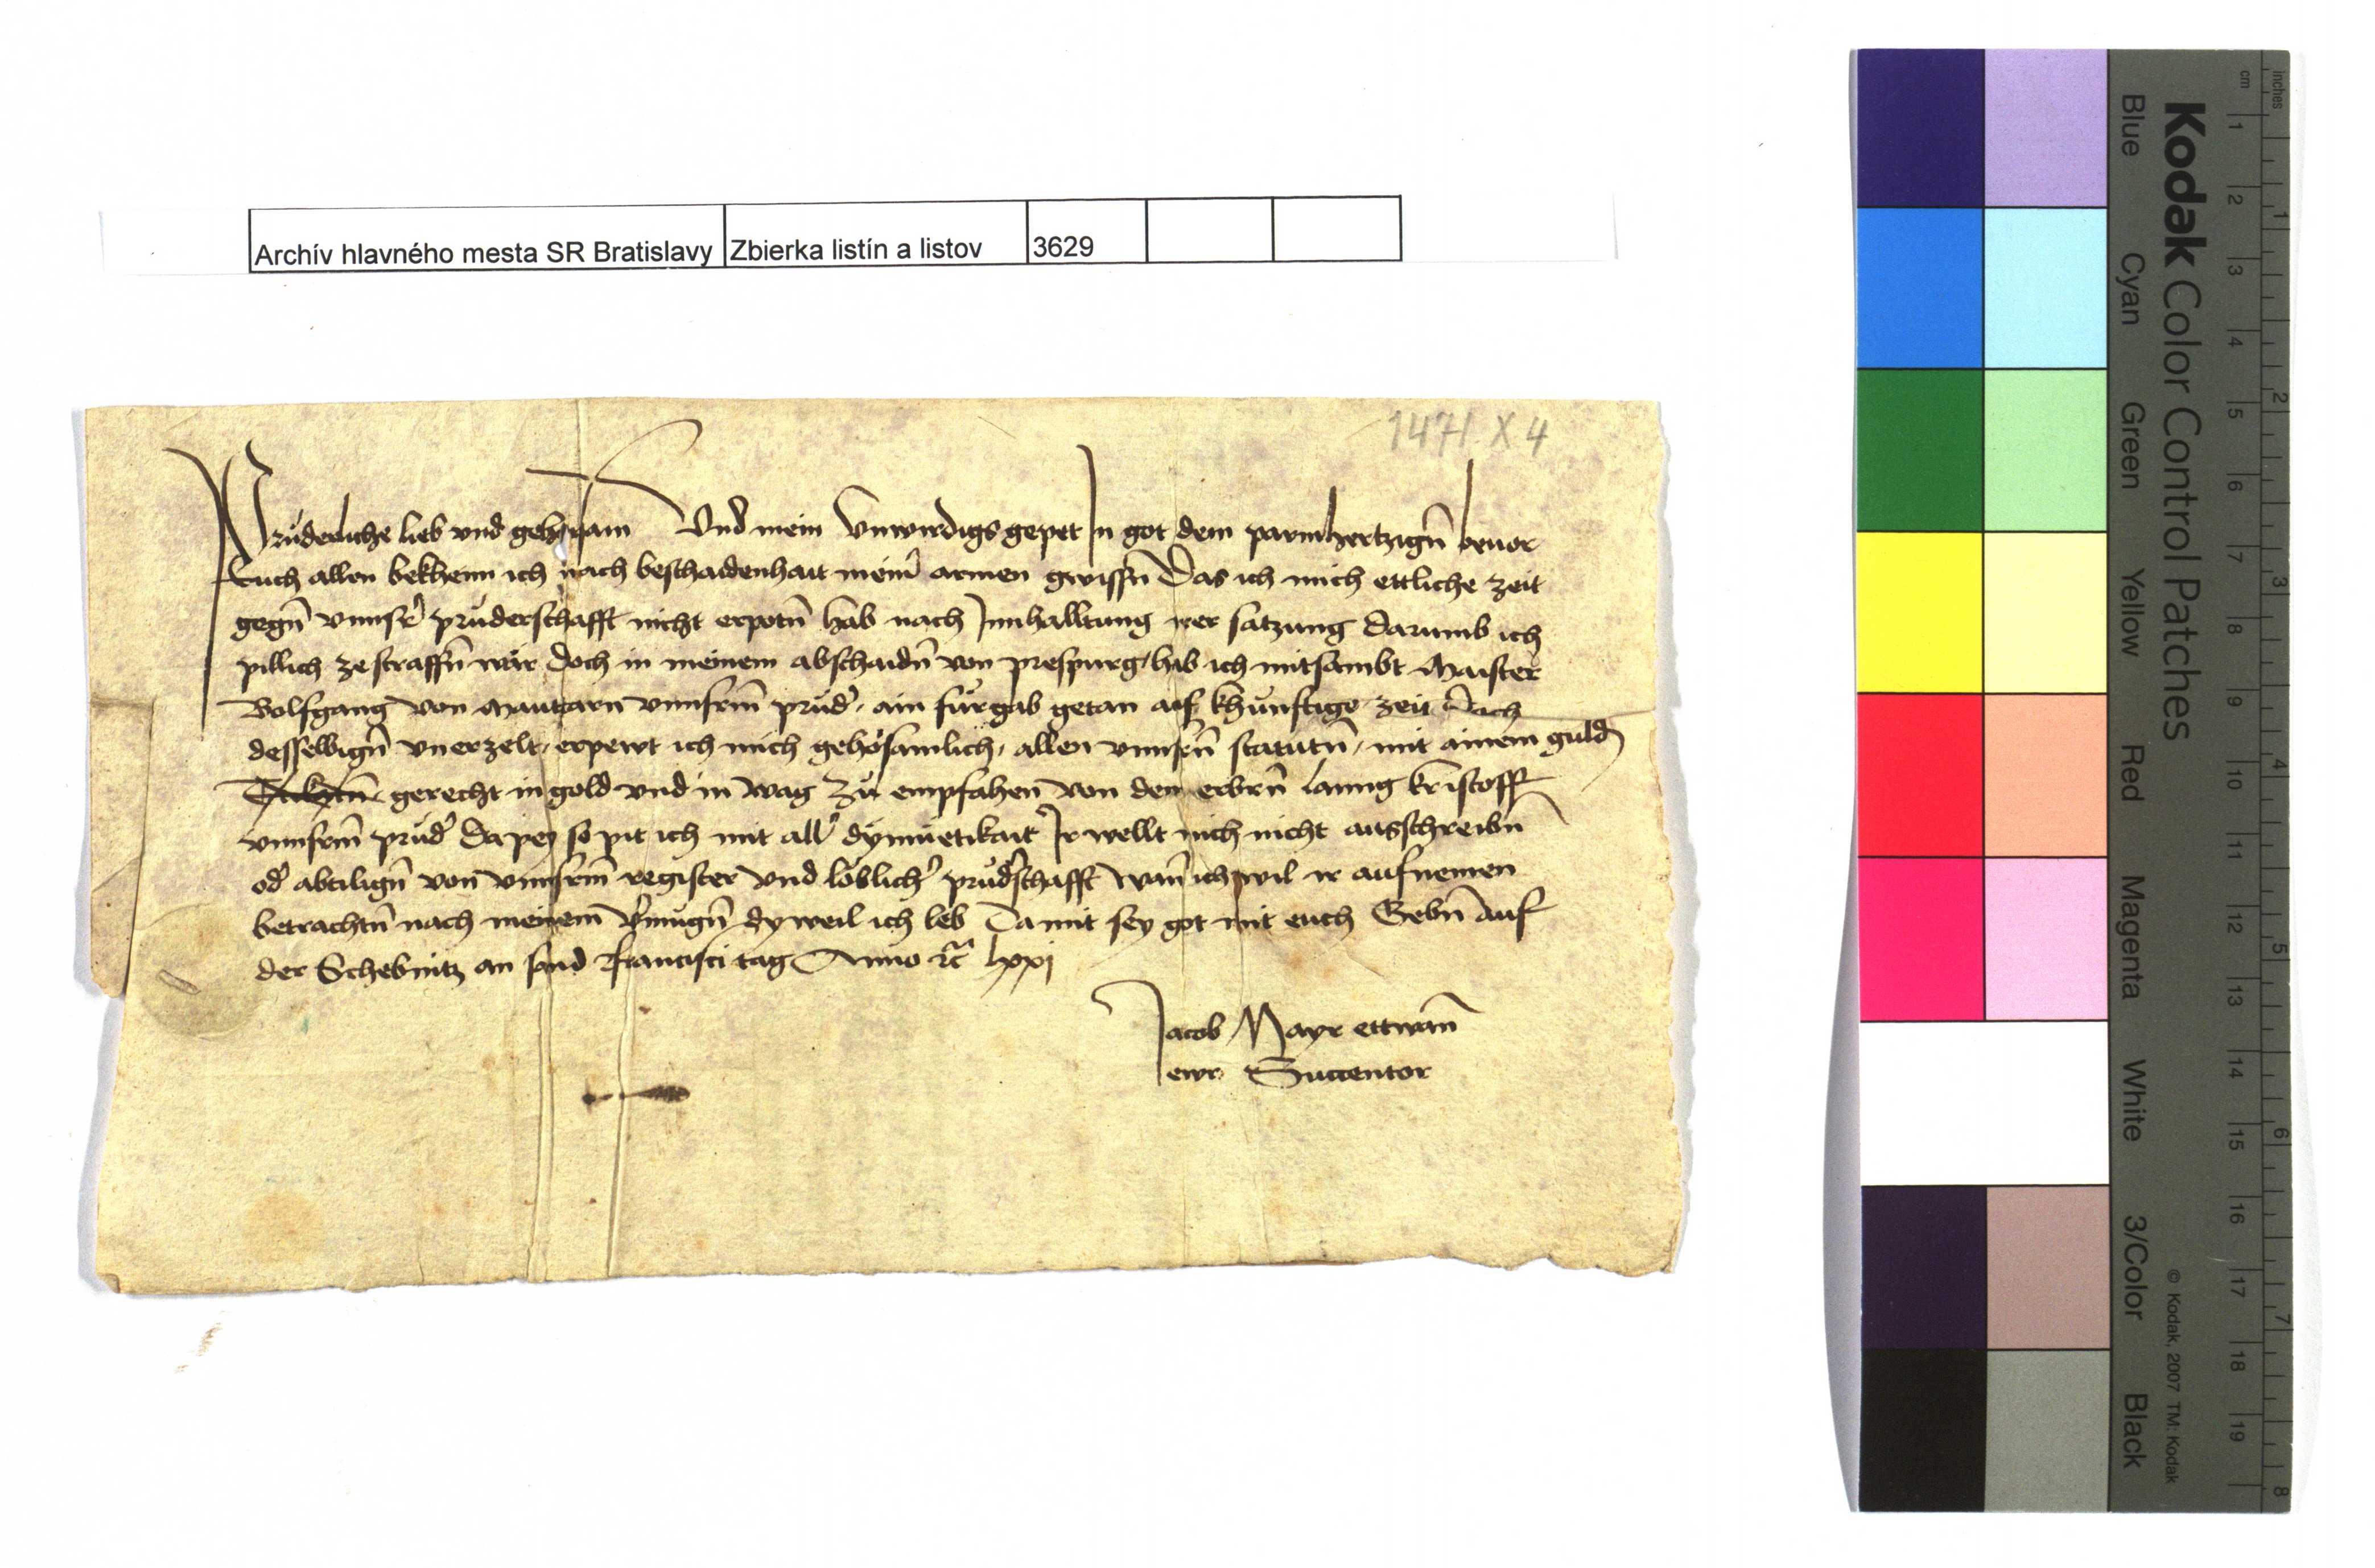 Archív hlavného mesta SR Bratislavy Zbierka listín a listov 3629
1471 X 4
Pruderliche lieb vnd gehorsam Vnd mein Vnwirdigs gepet In got dem parmhertzign̄ beuor
Euch allen bekhenn ich nach beschaidenhait mein̄ armen gwissn̄ Das ich mich ettliche zeit
gegn̄ vnnsr̄ pruderschafft nicht erpotn̄ hab nach Innhalltung irer satzung darumb ich
pillich ze straffn̄ wär doch in meinem abschaidn̄ von prespurg hab ich mitsambt Maister
Wolfgang von Mauttarn vnnserm̄ prud̄ ain furgab getan auf khunftige zeit Doch
desselbign̄ vnerzelt erpewt ich mich gehörsamlich allen vnnsern̄ statutn̄ mit ainem guld
gerecht in gold vnd in wag zu empfahen von dem erbrn̄ Kristoff
vnnserm̄ prud̄ Dapey so pit ich mit all̄ dymuetikait Ir wellt mich nicht ausschreibn̄
od̄ abtilign̄ von vnnserm̄ register vnd löblich̄ prud̄schafft Wan̄ ich wil ir aufnemen
betrachtn̄ nach meinem v̄mugn̄ dyweil ich leb Damit sey got mit euch Gebn̄ Auf
der Schebnitz an sand Francisci tag Anno ꝛc̄ lxxj
Jacob Mayr ettwan̄
ewr Succentor
Kodak Color Control Patches
Blue Cyan Green Yellow Red Magenta White 3/Color Black
© Kodak, 2007 TM: Kodak
cm 1 2 3 4 5 6 7 8 9 10 11 12 13 14 15 16 17 18 19
inches 1 2 3 4 5 6 7 8